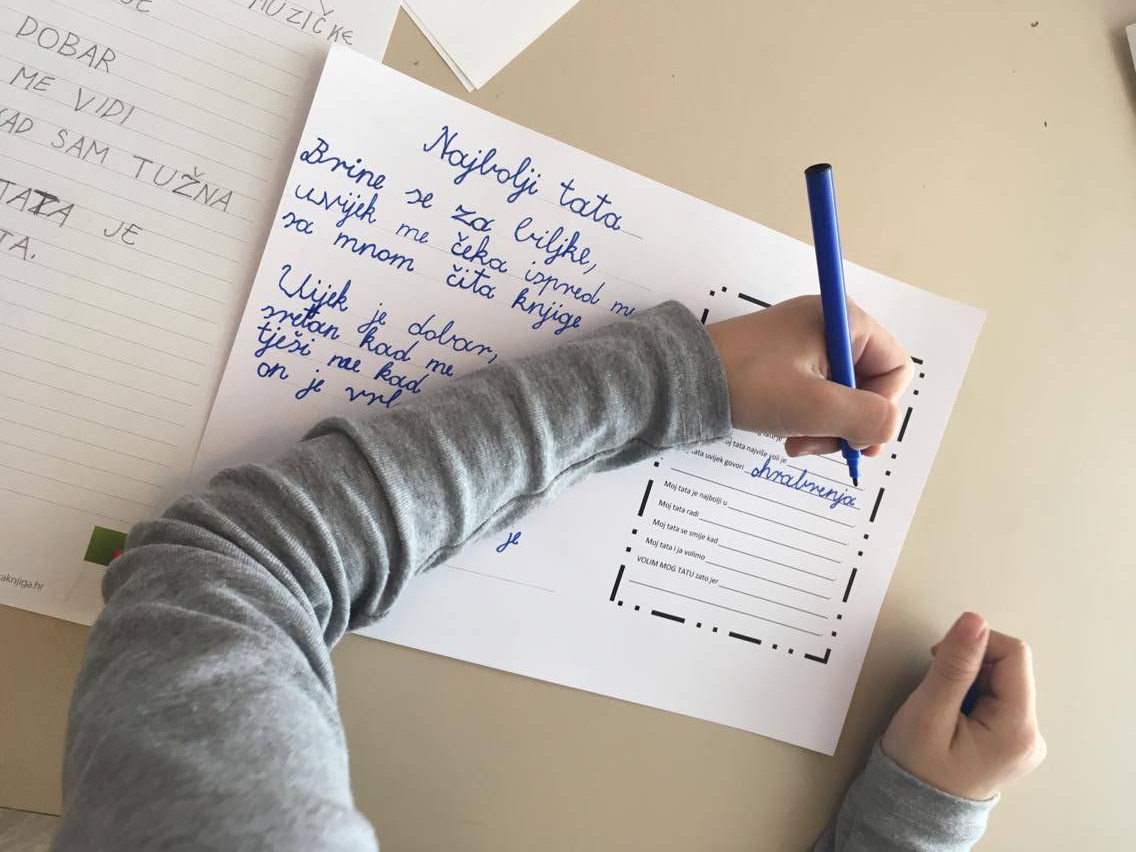 MUZIČKE
DOBAR
ME VIDI
KAD SAM TUŽNA
TATA JE
TA.
aknjiga.hr
Najbolji tata
Brine se za biljke,
uvijek me čeka ispred
sa mnom čita knjige
Uvijek je dobar,
sretan kad me
tješi me kad
on je
je
tata najviše voli je
tata uvijek govori ohrabrenja
Moj tata je najbolji u
Moj tata radi
Moj tata se smije kad
Moj tata i ja volimo
VOLIM MOG TATU zato jer